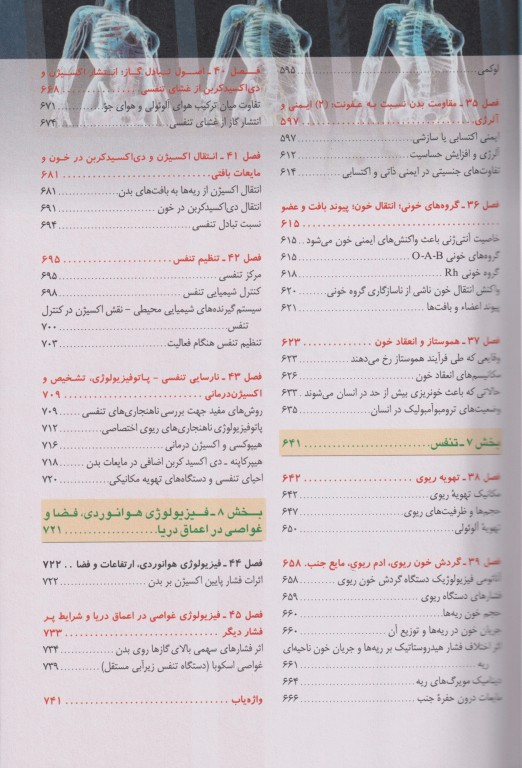 لوکمی ۵۹۵
فصل ۳۵ ـ مقاومت بدن نسبت به عفونت: (۲) ایمنی و
آلرژی ۵۹۷
ایمنی اکتسابی یا سازشی ۵۹۷
آلرژی و افزایش حساسیت ۶۱۲
تفاوت‌های جنسیتی در ایمنی ذاتی و اکتسابی ۶۱۴
فصل ۳۶ ـ گروه‌های خونی؛ انتقال خون؛ پیوند بافت و عضو
۶۱۵
خاصیت آنتی‌ژنی باعث واکنش‌های ایمنی خون می‌شود ۶۱۵
گروه‌های خونی O-A-B ۶۱۵
گروه خونی Rh ۶۱۸
واکنش انتقال خون ناشی از ناسازگاری گروه خونی ۶۲۰
پیوند اعضاء و بافت‌ها ۶۲۱
فصل ۳۷ ـ هموستاز و انعقاد خون ۶۲۳
وقایعی که طی فرآیند هموستاز رخ می‌دهند ۶۲۳
مکانیسم‌های انعقاد خون ۶۲۶
حالاتی که باعث خونریزی بیش از حد در انسان می‌شوند ۶۳۳
وضعیت‌های ترومبوآمبولیک در انسان ۶۳۵
بخش ۷ ـ تنفس ۶۴۱
فصل ۳۸ ـ تهویه ریوی ۶۴۲
مکانیک تهویهٔ ریوی ۶۴۲
حجم‌ها و ظرفیت‌های ریوی ۶۴۷
تهویهٔ آلوئولی ۶۵۰
فصل ۳۹ ـ گردش خون ریوی، ادم ریوی، مایع جنب ۶۵۸
آناتومی فیزیولوژیک دستگاه گردش خون ریوی ۶۵۸
فشارهای دستگاه ریوی ۶۵۹
حجم خون ریه‌ها ۶۶۰
جریان خون در ریه‌ها و توزیع آن ۶۶۰
اثر اختلاف فشار هیدروستاتیک بر ریه‌ها و جریان خون ناحیه‌ای
ریه ۶۶۱
دینامیک مویرگ‌های ریه ۶۶۴
مایعات درون حفرهٔ جنب ۶۶۶
فصل ۴۰ ـ اصول تبادل گاز؛ انتشار اکسیژن و
دی‌اکسیدکربن از غشای تنفسی ۶۶۸
تفاوت میان ترکیب هوای آلوئولی و هوای جوّ ۶۷۱
انتشار گاز از غشای تنفسی ۶۷۴
فصل ۴۱ ـ انتقال اکسیژن و دی‌اکسیدکربن در خون و
مایعات بافتی ۶۸۱
انتقال اکسیژن از ریه‌ها به بافت‌های بدن ۶۸۱
انتقال دی‌اکسیدکربن در خون ۶۹۱
نسبت تبادل تنفسی ۶۹۴
فصل ۴۲ ـ تنظیم تنفس ۶۹۵
مرکز تنفسی ۶۹۵
کنترل شیمیایی تنفس ۶۹۸
سیستم گیرنده‌های شیمیایی محیطی - نقش اکسیژن در کنترل
تنفس ۷۰۰
تنظیم تنفس هنگام فعالیت ۷۰۳
فصل ۴۳ ـ نارسایی تنفسی - پاتوفیزیولوژی، تشخیص و
اکسیژن‌درمانی ۷۰۹
روش‌های مفید جهت بررسی ناهنجاری‌های تنفسی ۷۰۹
پاتوفیزیولوژی ناهنجاری‌های ریوی اختصاصی ۷۱۲
هیپوکسی و اکسیژن درمانی ۷۱۶
هیپرکاپنه ـ دی اکسید کربن اضافی در مایعات بدن ۷۱۸
احیای تنفسی و دستگاه‌های تهویه مکانیکی ۷۲۰
بخش ۸ ـ فیزیولوژی هوانوردی، فضا و
غواصی در اعماق دریا ۷۲۱
فصل ۴۴ ـ فیزیولوژی هوانوردی، ارتفاعات و فضا ۷۲۲
اثرات فشار پایین اکسیژن بر بدن ۷۲۲
فصل ۴۵ ـ فیزیولوژی غواصی در اعماق دریا و شرایط پر
فشار دیگر ۷۳۳
اثر فشارهای سهمی بالای گازها روی بدن ۷۳۴
غواصی اسکوبا (دستگاه تنفس زیرآبی مستقل) ۷۳۹
واژه‌یاب ۷۴۱